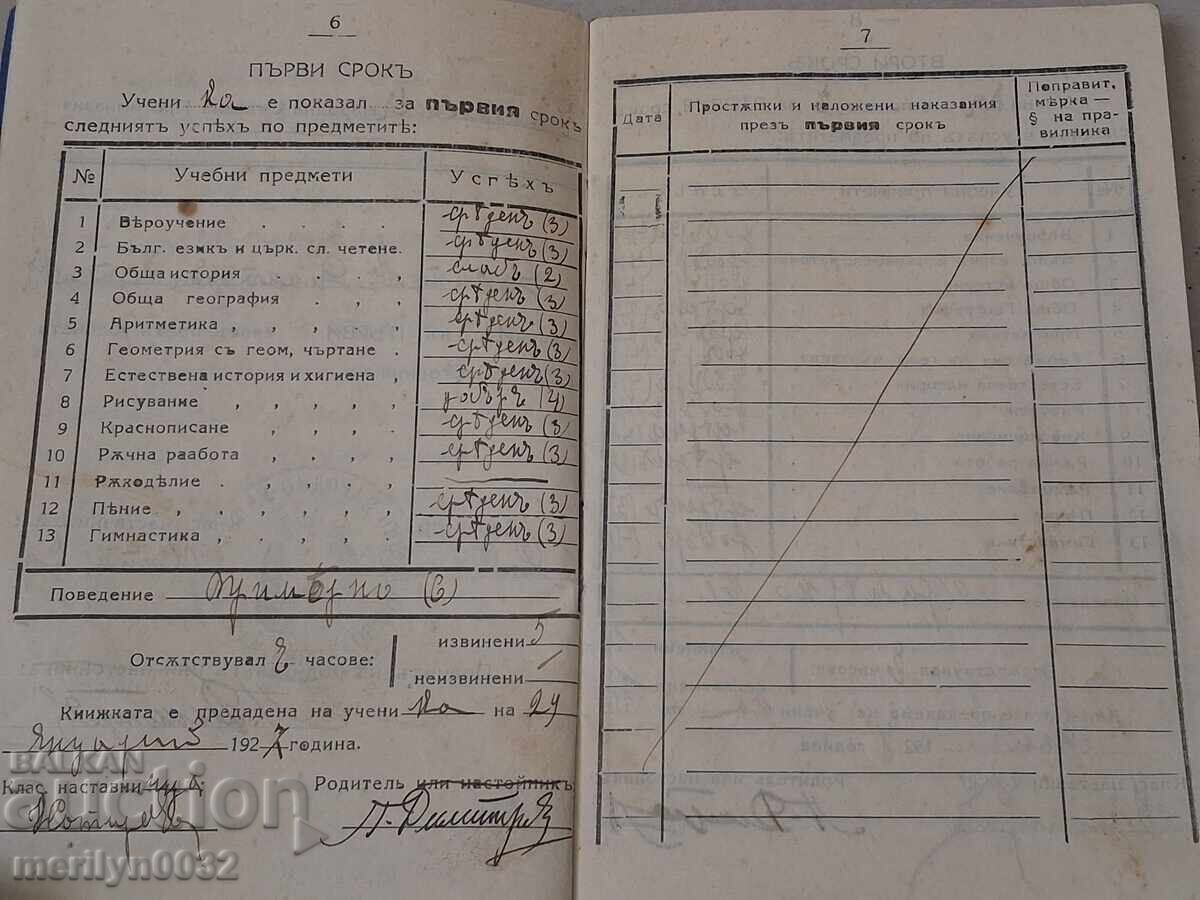 6
ПЪРВИ СРОКЪ
Учени ка е показал за първия срокъ
следниятъ успѣхъ по предметитѣ:
№ Учебни предмети Успѣхъ
1 Вѣроучение срѣденъ (3)
2 Бълг. езикъ и църк. сл. четене. срѣденъ (3)
3 Обща история слабъ (2)
4 Обща география срѣденъ (3)
5 Аритметика срѣденъ (3)
6 Геометрия съ геом, чъртане срѣденъ (3)
7 Естествена история и хигиена срѣденъ (3)
8 Рисувание добъръ (4)
9 Краснописане срѣденъ (3)
10 Рѫчна раабота срѣденъ (3)
11 Рѫкодѣлие
12 Пѣние срѣденъ (3)
13 Гимнастика срѣденъ (3)
Поведение Примѣрно (6)
извинени 5
Отсѫтствувал е часове:
неизвинени /
Книжката е предадена на учени ка на 24
Януарий 1927 година.
Клас. наставни Родитель или настойникъ
П. Димитров
7
Дата Простѫпки и наложени наказания презъ първия срокъ Поправит, мѣрка — § на правилника
BALKAN auction
merilyn0032